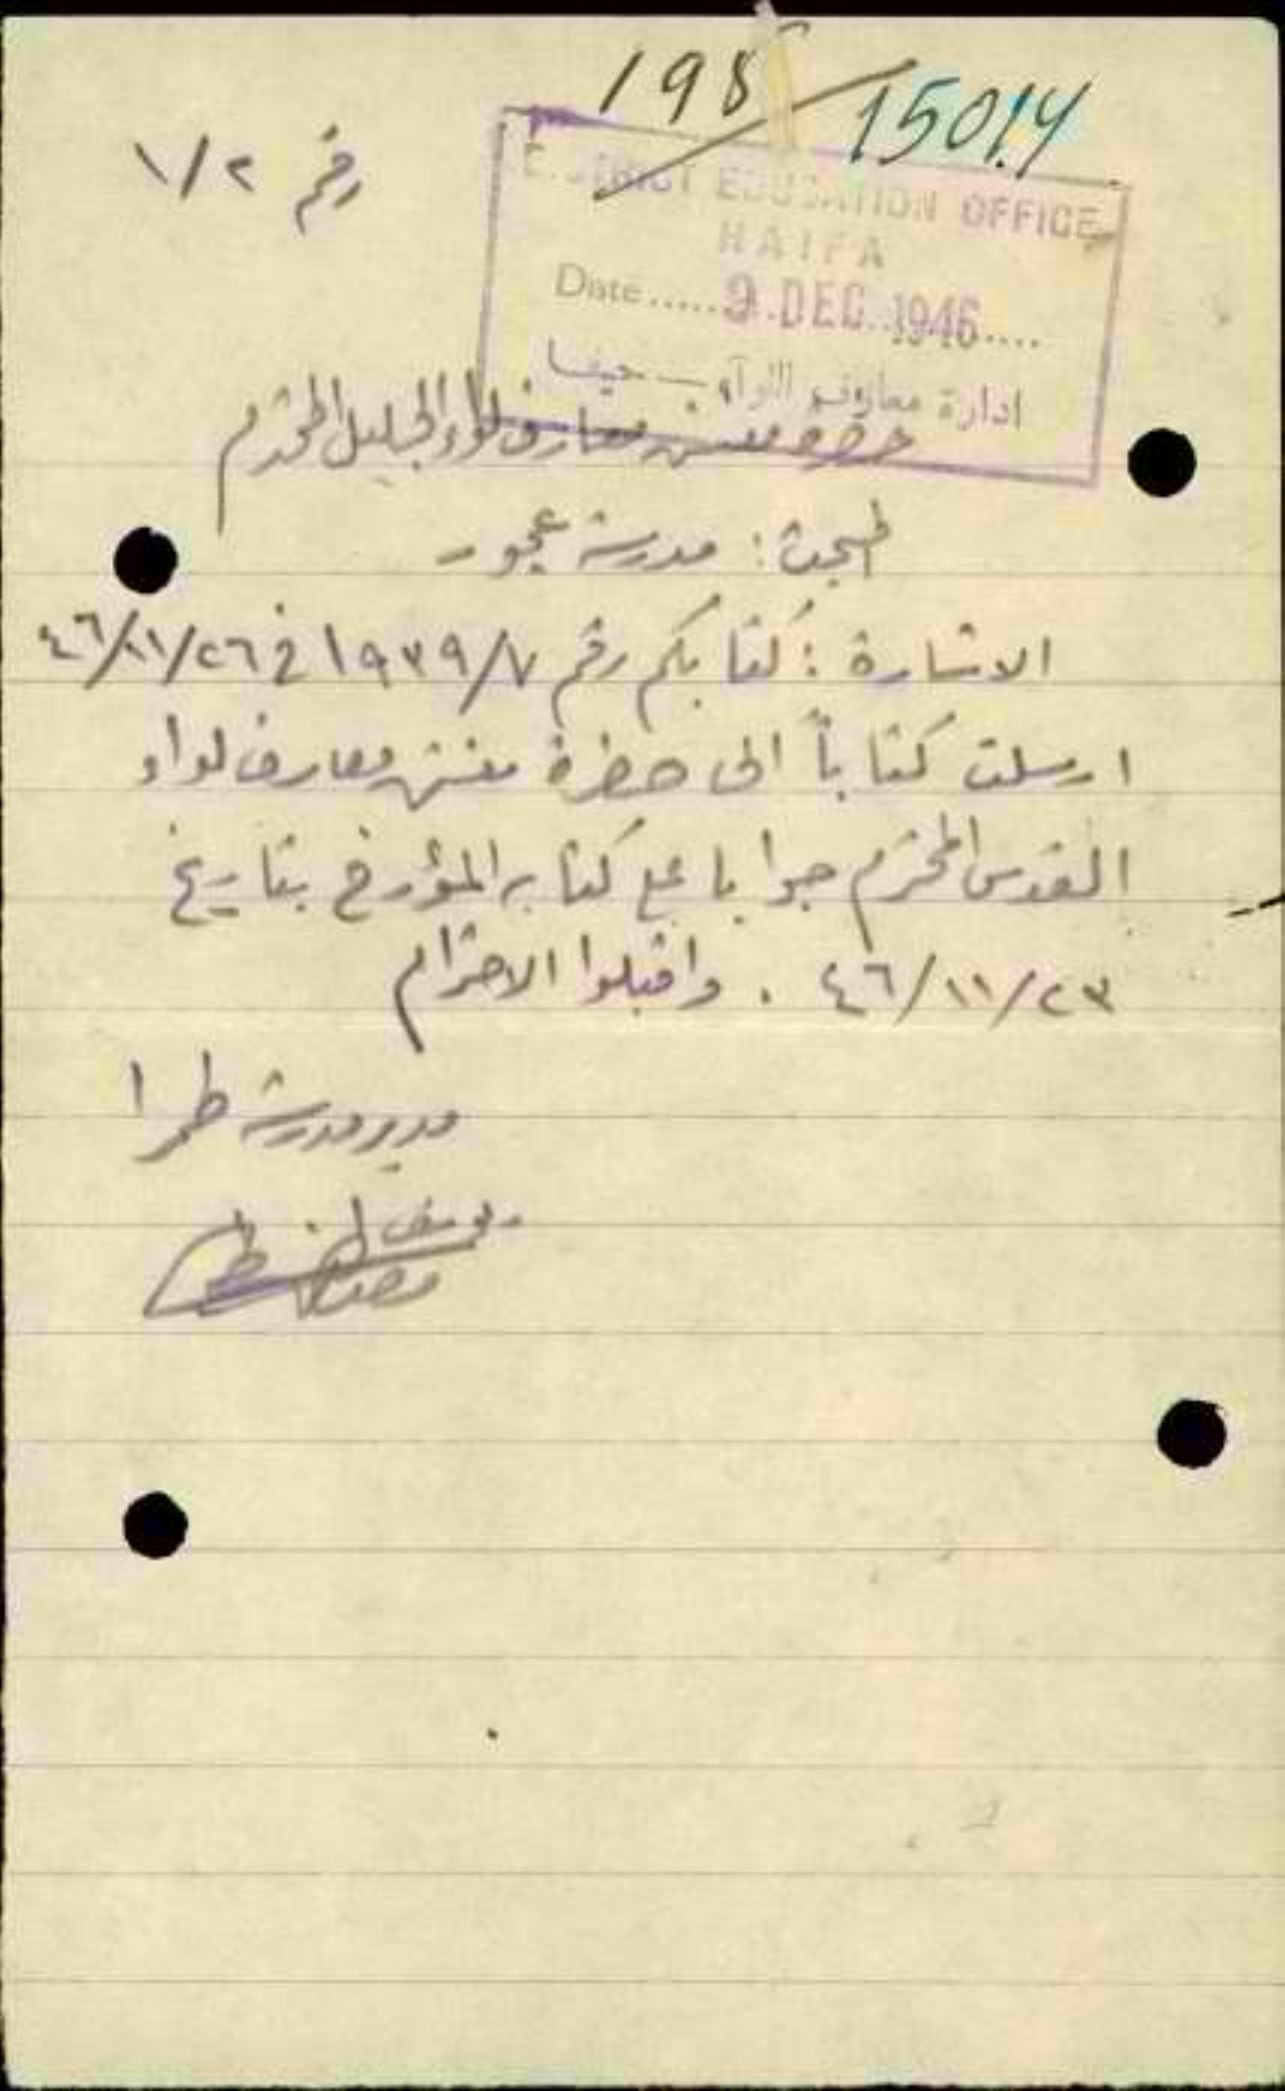 198
15014
رقم ١/٢
DISTRICT EDUCATION OFFICE
HAIFA
Date..... 9.DEC.1946....
ادارة معارف اللوآء - حيفا
حضرة مفتش معارف لواء الجليل المحترم
المبحث : مدرسة عجور -
الاشارة : كتابكم رقم ١٩٣٩/٧ في ٤٦/١١/٢٦
ارسلت كتاباً الى حضرة مفتش معارف لواء
القدس المحترم جوابا على كتابه المؤرخ بتاريخ
٤٦/١١/٢٣ . واقبلوا الاحترام
مدير مدرسة طمرا
يوسف